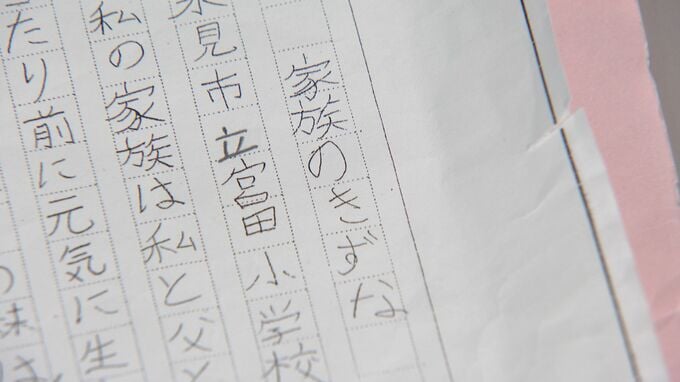 家族のきずな
氷見市立宮田小学校
私の家族は私と父と
たり前に元気に生
の妹は